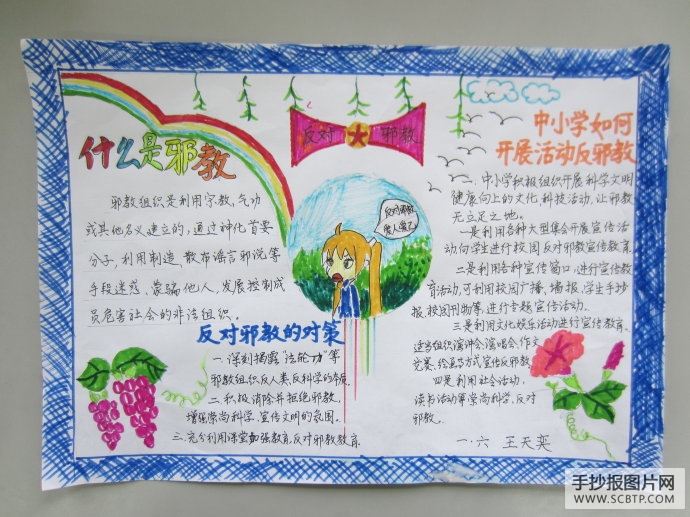 什么是邪教
邪教组织是利用宗教,气功
或其他名义建立的,通过神化首要
分子,利用制造、散布谣言邪说等
手段迷惑、蒙骗他人,发展控制成
员危害社会的非法组织。
反对邪教
反对邪教
反对邪教的对策
一.深刻揭露"法轮功"等
邪教组织反人类,反科学的本质.
二.积极消除并拒绝邪教,
增强崇尚科学,宣传文明的氛围.
三.充分利用课堂加强教育,反对邪教教育.
中小学如何
开展活动反邪教
一.中小学积极组织开展科学文明
健康向上的文化科技活动,让邪教
无立足之地。
一是利用各种大型集会开展宣传活
动,向学生进行校园反对邪教宣传教育.
二是利用各种宣传窗口,进行宣传教
育活动,可利用校园广播,墙报,学生手抄
报,校园刊物等,进行专题宣传活动.
三是利用文化娱乐活动进行宣传教育.
适当组织演讲会,演唱会,作文
竞赛,绘画等方式宣传反邪教.
四是利用社会活动.
读书活动等崇尚科学,反对
邪教.
一.六 王天奕
手抄报图片网
WWW.SCBTP.COM